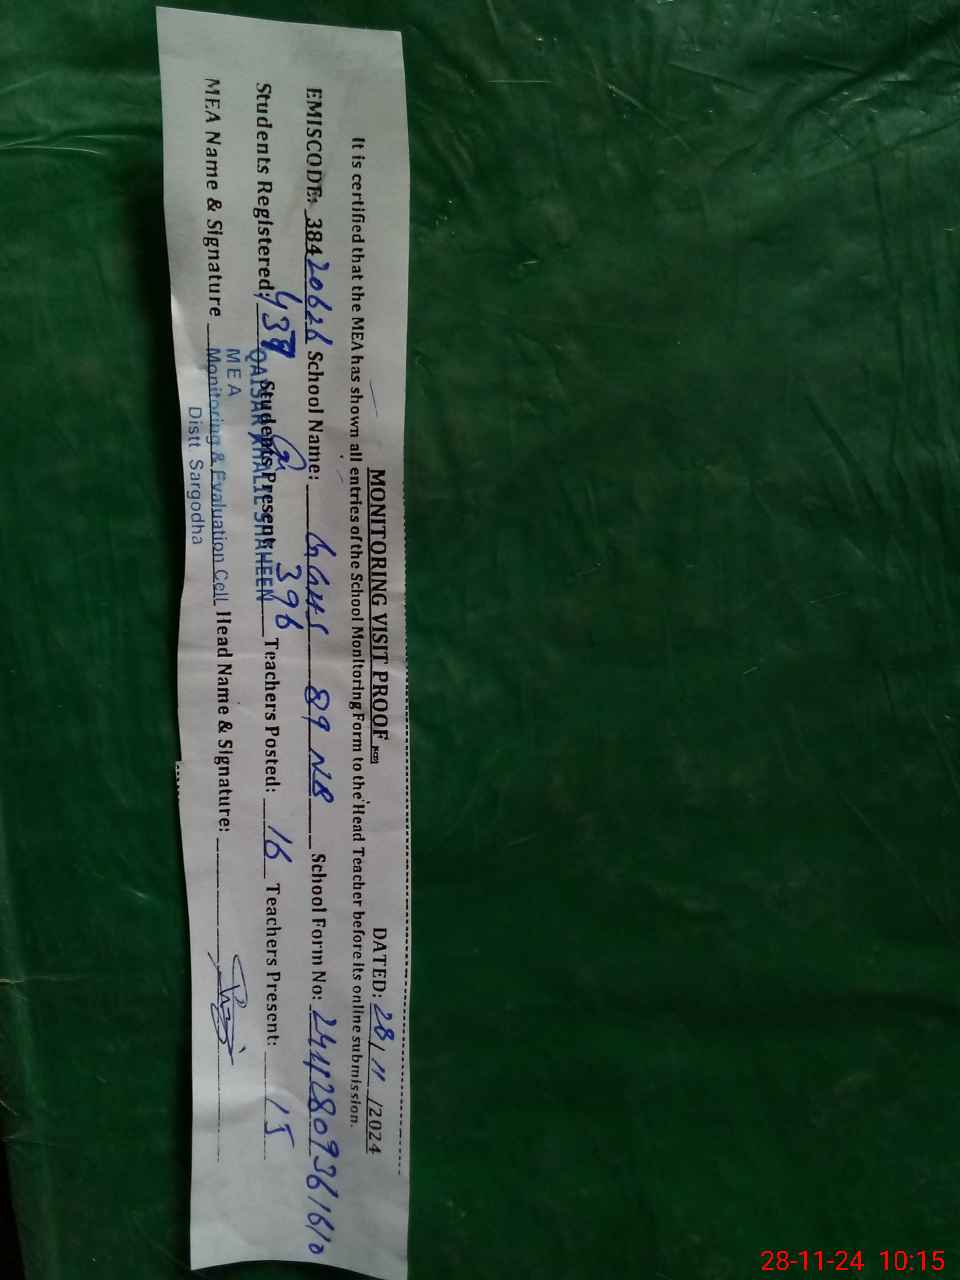 MONITORING VISIT PROOF DATED: 28/11/2024
It is certified that the MEA has shown all entries of the School Monitoring Form to the Head Teacher before its online submission.
EMISCODE: 38420626 School Name: GGHS 89 NB School Form No:
Students Registered: Students Present 396 Teachers Posted: 16 Teachers Present: 15
QAISAR SHAHEEN
MEA Name & Signature Head Name & Signature:
MEA
Monitoring & Evaluation Cell
Distt. Sargodha
28-11-24 10:15